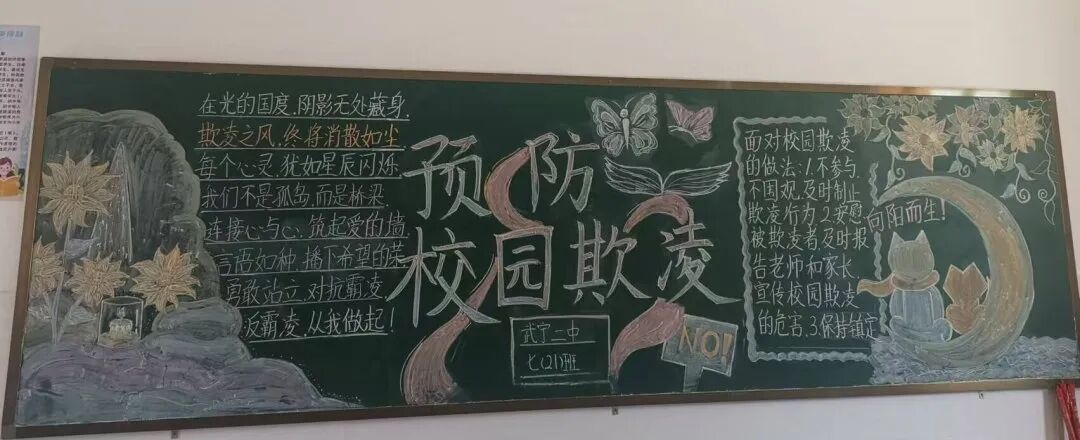 在光的国度,阴影无处藏身,
欺凌之风,终将消散如尘
每个心灵,犹如星辰闪烁
我们不是孤岛,而是桥梁
连接心与心,筑起爱的墙,
言语如种,播下希望的
勇敢站立,对抗霸凌
霸凌,从我做起!
预防
校园欺凌
武宁二中
七(21)班
NO!
面对校园欺凌
的做法:1.不参与,
不围观,及时制止
欺凌行为2.安慰
被欺凌者,及时报
告老师和家长,
宣传校园欺凌
的危害,3.保持镇定
向阳而生!